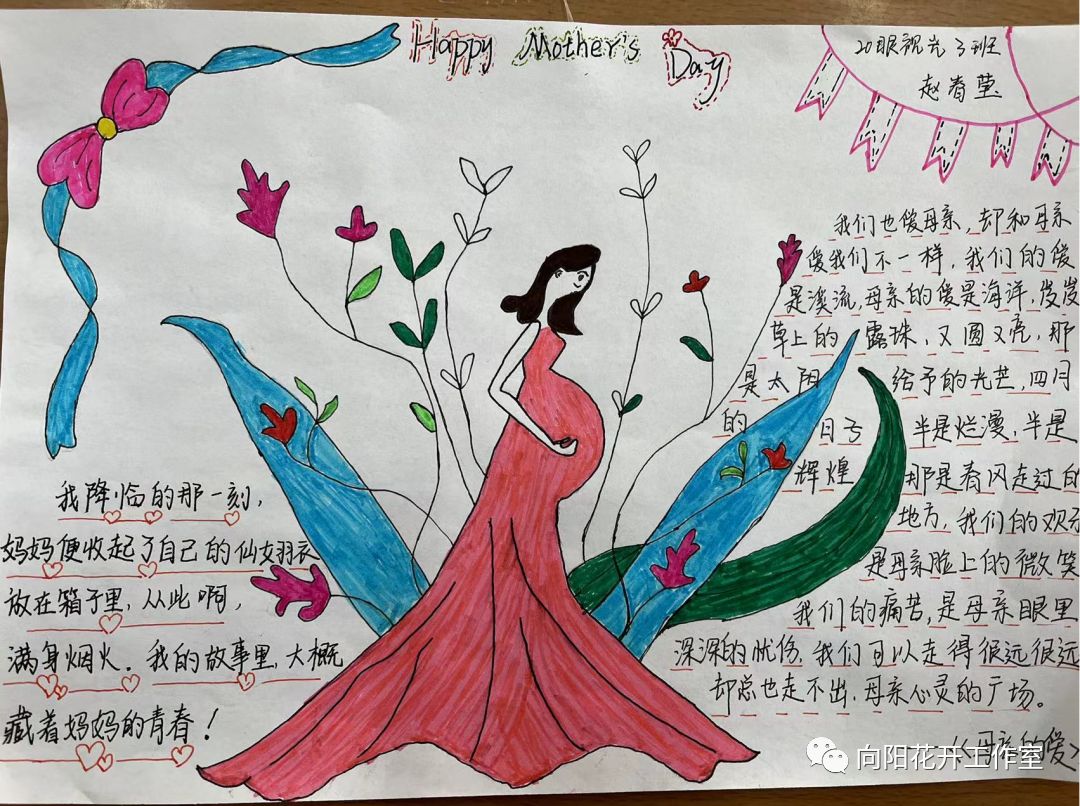 Happy Mother's Day
20眼视光3班
赵春莹
我们也爱母亲,却和母亲
爱我们不一样,我们的爱
是溪流,母亲的爱是海洋,岌岌
草上的 露珠,又圆又亮,那
是太阳 给予的光芒,四月
的 日子 半是烂漫,半是
辉煌 那是春风走过的
地方,我们的欢乐
是母亲脸上的微笑
我们的痛苦,是母亲眼里
深深的忧伤,我们可以走得很远很远
却总也走不出,母亲心灵的广场。
——《母亲的爱》
我降临的那一刻,
妈妈便收起了自己的仙女羽衣
放在箱子里,从此啊,
满身烟火。我的故事里,大概
藏着妈妈的青春!
向阳花开工作室